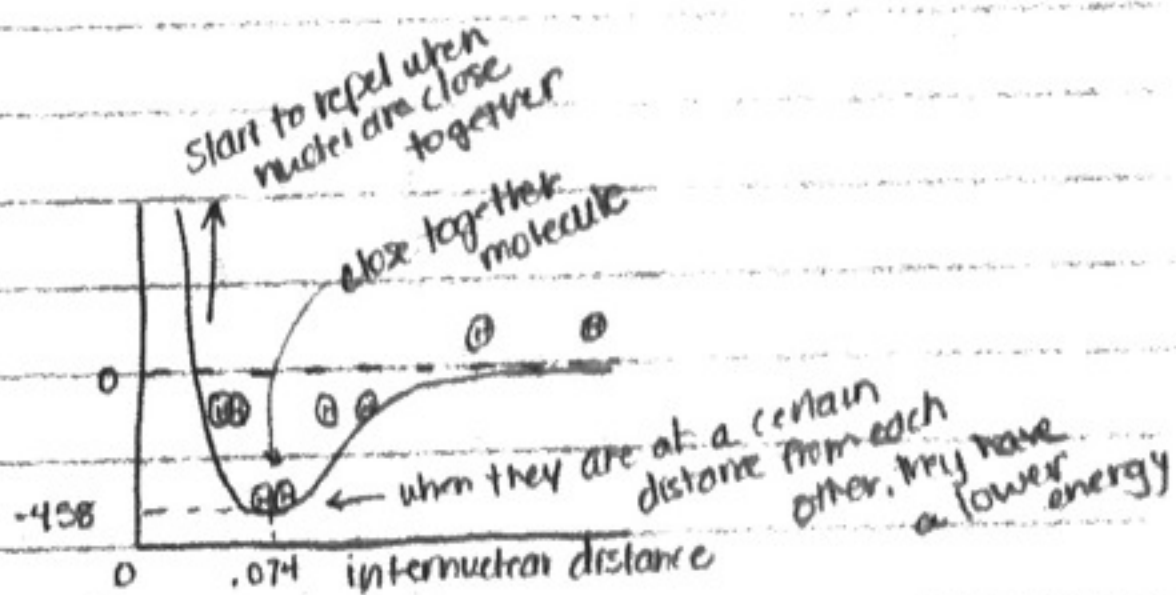 Start to repel when
nuclei are close
together
close together
molecule
H
H
0
H H
H
H
when they are at a certain
distance from each
other, they have
a lower
energy
H H
-458
0
.074
internuclear distance